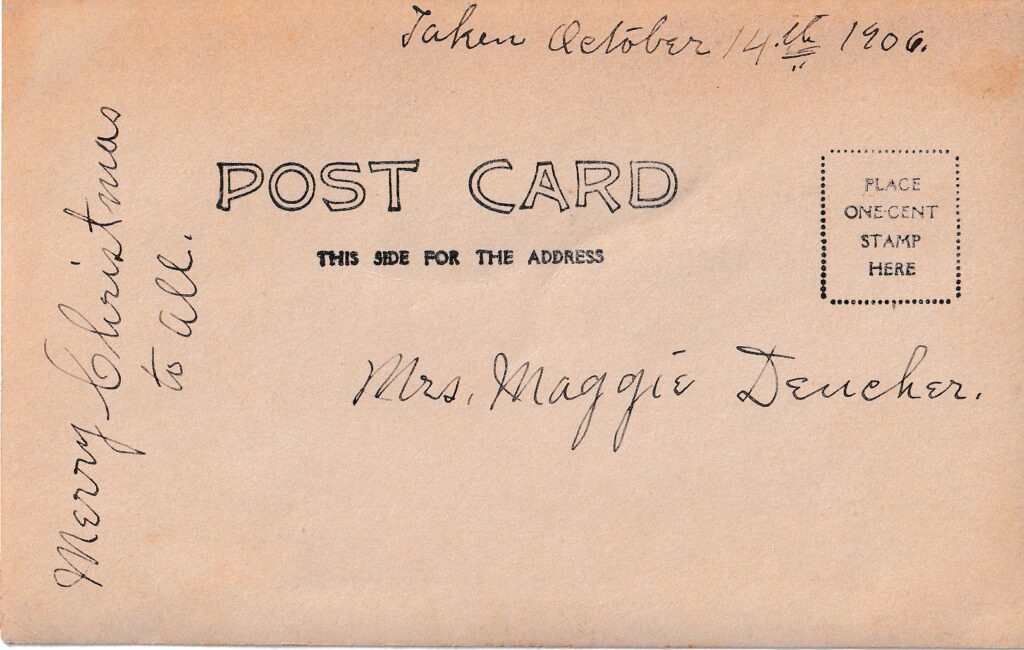 Taken October 14.th 1906.
POST CARD
THIS SIDE FOR THE ADDRESS
PLACE
ONE-CENT
STAMP
HERE
Mrs. Maggie Deucher.
Merry Christmas
to all.